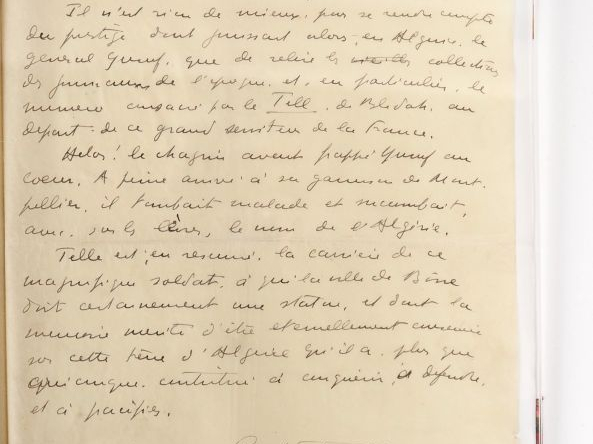 Il n'est rien de mieux, pour se rendre compte
du prestige dont jouissait alors, en Algérie, le
général Yusuf, que de relire les vieilles collections
des journaux de l'époque et, en particulier, le
numéro consacré par le Tell, de Blidah, au
départ de ce grand serviteur de la France.
Hélas! le chagrin avait frappé Yusuf au
coeur. A peine arrivé à sa garnison de Mont-
pellier, il tombait malade et succombait,
avec, sur les lèvres, le nom de l'Algérie.
Telle est, en résumé, la carrière de ce
magnifique soldat, à qui la ville de Bône
doit certainement une statue, et dont la
mémoire mérite d'être éternellement conservée
sur cette terre d'Algérie qu'il a, plus que
quiconque, contribué à conquérir, à défendre,
et à pacifier.